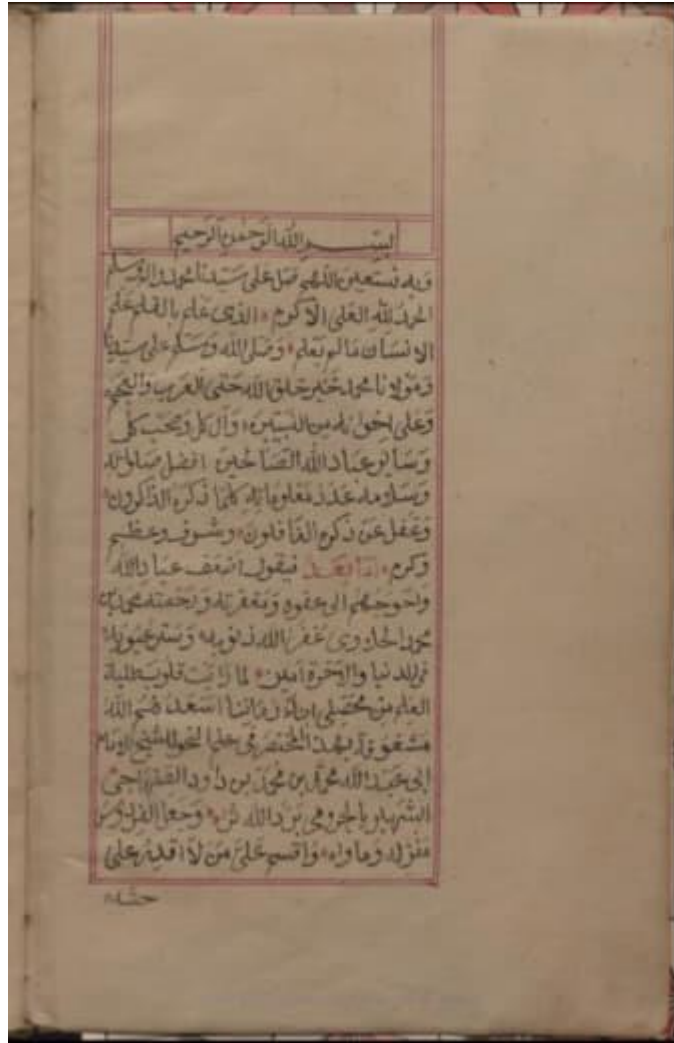 بسم الله الرحمن الرحيم
وبه نستعين اللهم صل على سيدنا محمد واله وسلم
الحمد لله العلي الاكرم الذى علم بالقلم علم
الانسان مالم يعلم وصلى الله وسلم على سيدنا
ومولانا محمد خير خلق الله حتى العرب والعجم
وعلى اخوانه من النبيين وآل كل وصحب كل
وساير عباد الله الصالحين افضل صلواته
وسلامه عدد معلوماته كلما ذكره الذاكرون
وغفل عن ذكره الغافلون وشرف وعظم
وكرم اما بعد فيقول اضعف عباد الله
واحوجهم الى عفوه ومغفرته ورحمته محمد بن
محمد غفر الله ذنوبه وستر عيوبه
فى الدنيا والاخرة امين لما رايت قلوب طلبة
العلم من محصلى ابناء زماننا اسعدهم الله
مشغوفة بهذا المختصر فى علم النحو للشيخ الامام
ابى عبد الله محمد بن محمد بن داود الصنهاجى
الشهير بالجرومى برد الله ثراه وجعل الفردوس
منزله وماواه واقسم على من لا اقدر على